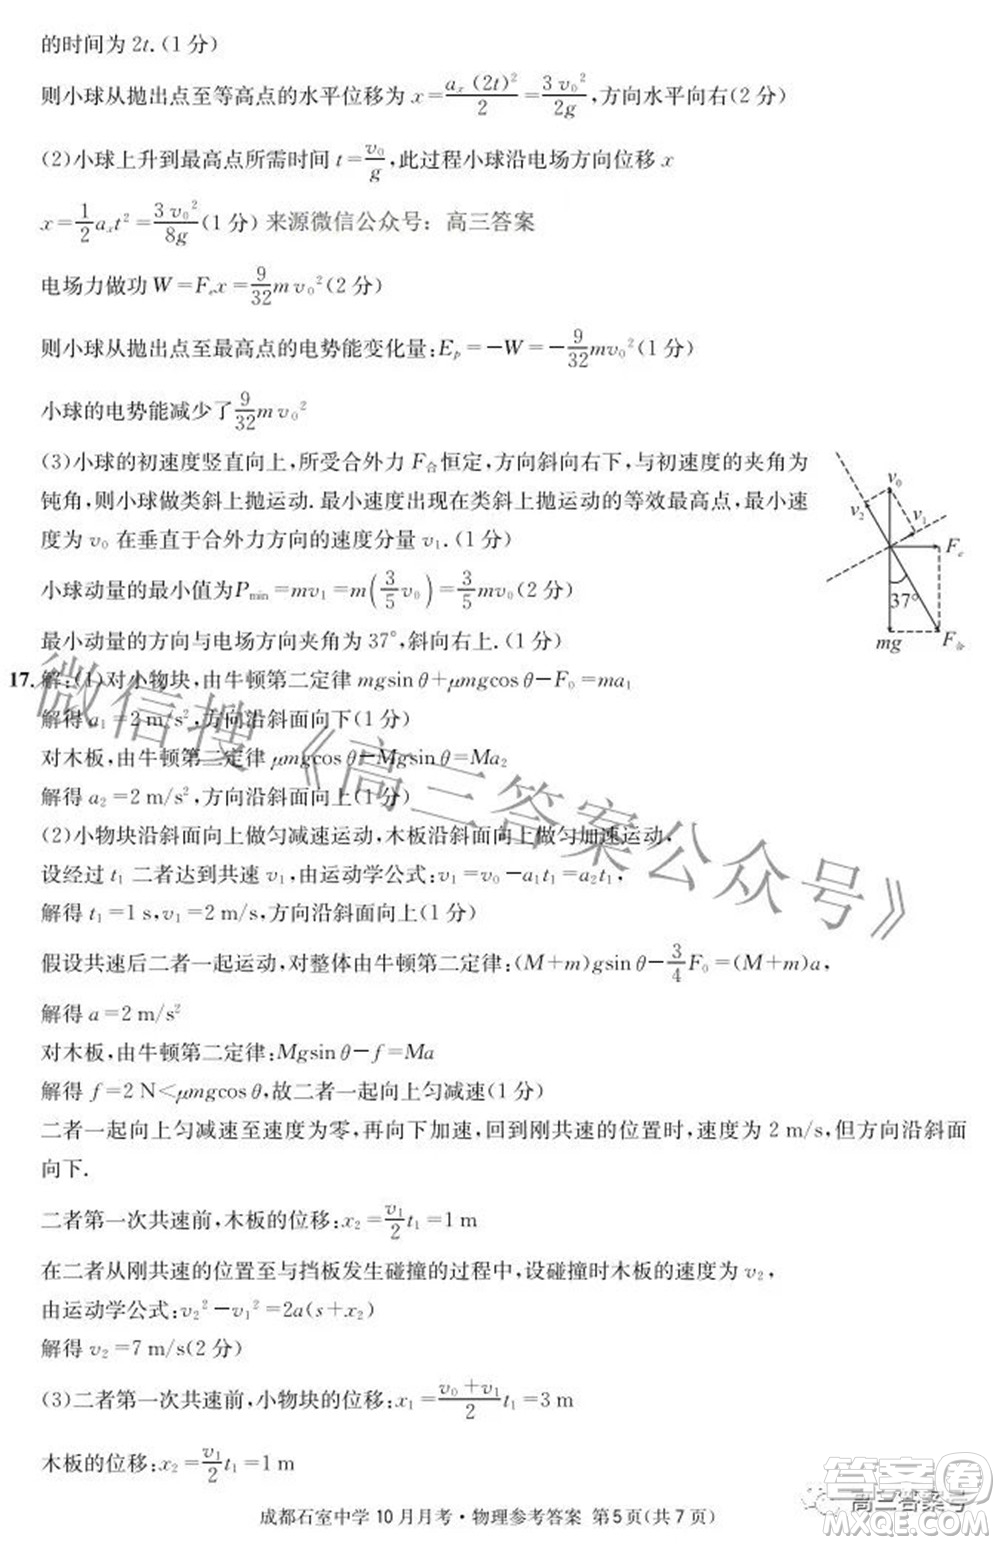 的时间为 2t.(1 分)
则小球从抛出点至等高点的水平位移为 x=aₓ(2t)²/2=3v₀²/2g,方向水平向右(2 分)
(2)小球上升到最高点所需时间 t=v₀/g,此过程小球沿电场方向位移 x
x=1/2aₓt²=3v₀²/8g(1 分) 来源微信公众号：高三答案
电场力做功 W=Fₑx=9/32mv₀²(2 分)
则小球从抛出点至最高点的电势能变化量:Eₚ=-W=-9/32mv₀²(1 分)
小球的电势能减少了9/32mv₀²
(3)小球的初速度竖直向上,所受合外力 F合恒定,方向斜向右下,与初速度的夹角为
钝角,则小球做类斜上抛运动.最小速度出现在类斜上抛运动的等效最高点,最小速
度为 v₀ 在垂直于合外力方向的速度分量 v₁.(1 分)
小球动量的最小值为Pmin=mv₁=m(3/5v₀)=3/5mv₀(2 分)
最小动量的方向与电场方向夹角为 37°,斜向右上.(1 分)
v₀
v₂
v₁
Fₑ
37°
mg
F合
17.解:(1)对小物块,由牛顿第二定律 mgsin θ+μmgcos θ-F₀=ma₁
解得 a₁=2 m/s²,方向沿斜面向下(1 分)
对木板,由牛顿第二定律 μmgcos θ-Mgsin θ=Ma₂
解得 a₂=2 m/s²,方向沿斜面向上(1 分)
(2)小物块沿斜面向上做匀减速运动,木板沿斜面向上做匀加速运动,
设经过 t₁ 二者达到共速 v₁,由运动学公式:v₁=v₀-a₁t₁=a₂t₁,
解得 t₁=1 s,v₁=2 m/s,方向沿斜面向上(1 分)
假设共速后二者一起运动,对整体由牛顿第二定律:(M+m)gsin θ-3/4F₀=(M+m)a,
解得 a=2 m/s²
对木板,由牛顿第二定律:Mgsin θ-f=Ma
解得 f=2 N<μmgcos θ,故二者一起向上匀减速(1 分)
二者一起向上匀减速至速度为零,再向下加速,回到刚共速的位置时,速度为 2 m/s,但方向沿斜面
向下.
二者第一次共速前,木板的位移:x₂=v₁/2t₁=1 m
在二者从刚共速的位置至与挡板发生碰撞的过程中,设碰撞时木板的速度为 v₂,
由运动学公式:v₂²-v₁²=2a(s+x₂)
解得 v₂=7 m/s(2 分)
(3)二者第一次共速前,小物块的位移:x₁=(v₀+v₁)/2t₁=3 m
木板的位移:x₂=v₁/2t₁=1 m
成都石室中学 10 月月考·物理参考答案 第 5 页(共 7 页)
微信搜《高三答案公众号》
高三答案号
答案圈
MXQE.COM